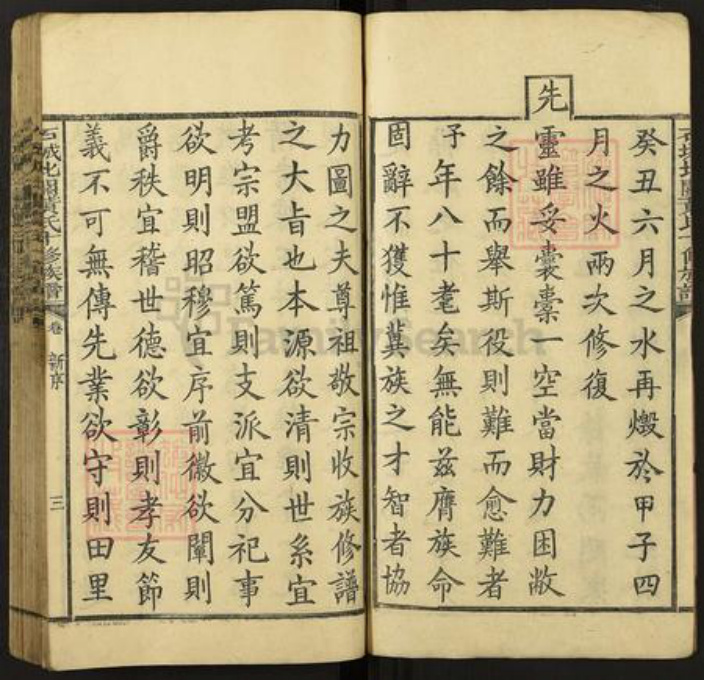 癸丑六月之水再燬於甲子四
月之火兩次修復
先
靈雖妥囊橐一空當財力困敝
之餘而舉斯役則難而愈難者
予年八十耄矣無能茲膺族命
固辭不獲惟冀族之才智者協
力圖之夫尊祖敬宗收族修譜
之大旨也本源欲清則世系宜
考宗盟欲篤則支派宜分祀事
欲明則昭穆宜序前徽欲闡則
爵秩宜稽世德欲彰則孝友節
義不可無傳先業欲守則田里
石城北關黃氏十修族譜
卷
新序
三
FamilySearch